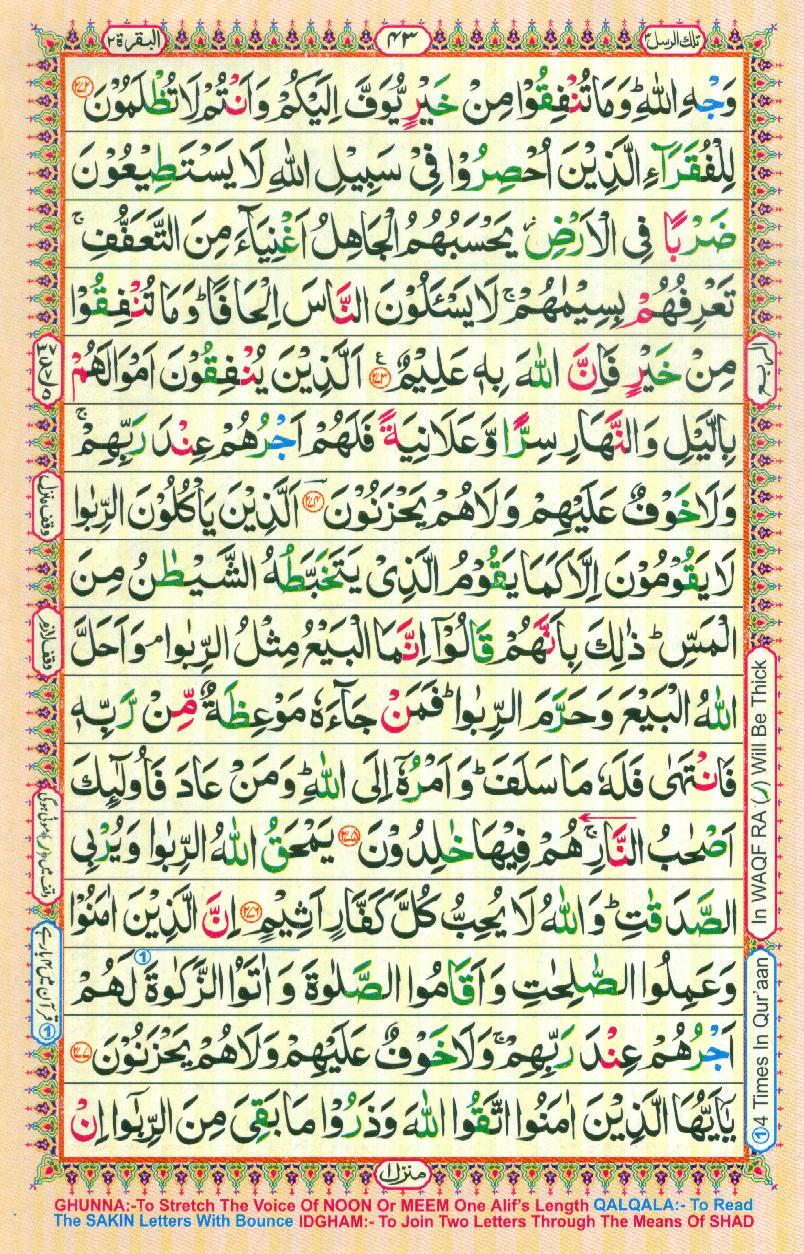 تلك الرسل ٣
٤٣
البقرة ٢
وَجْهِ اللّٰهِ ؕ وَمَا تُنْفِقُوْا مِنْ خَيْرٍ يُّوَفَّ اِلَيْكُمْ وَاَنْتُمْ لَا تُظْلَمُوْنَ ﴿۲۷۲﴾
لِلْفُقَرَآءِ الَّذِيْنَ اُحْصِرُوْا فِیْ سَبِيْلِ اللّٰهِ لَا يَسْتَطِيْعُوْنَ
ضَرْبًا فِی الْاَرْضِ ؗ يَحْسَبُهُمُ الْجَاهِلُ اَغْنِيَآءَ مِنَ التَّعَفُّفِ ۚ
تَعْرِفُهُمْ بِسِيْمٰهُمْ ۚ لَا يَسْـَٔلُوْنَ النَّاسَ اِلْحَافًا ؕ وَمَا تُنْفِقُوْا
مِنْ خَيْرٍ فَاِنَّ اللّٰهَ بِهٖ عَلِيْمٌ ﴿۲۷۳﴾ اَلَّذِيْنَ يُنْفِقُوْنَ اَمْوَالَهُمْ
بِالَّيْلِ وَالنَّهَارِ سِرًّا وَّعَلَانِيَةً فَلَهُمْ اَجْرُهُمْ عِنْدَ رَبِّهِمْ ۚ
وَلَا خَوْفٌ عَلَيْهِمْ وَلَا هُمْ يَحْزَنُوْنَ ﴿۲۷۴﴾ اَلَّذِيْنَ يَاْكُلُوْنَ الرِّبٰوا
لَا يَقُوْمُوْنَ اِلَّا كَمَا يَقُوْمُ الَّذِیْ يَتَخَبَّطُهُ الشَّيْطٰنُ مِنَ
الْمَسِّ ؕ ذٰلِكَ بِاَنَّهُمْ قَالُوْۤا اِنَّمَا الْبَيْعُ مِثْلُ الرِّبٰوا ۘ وَاَحَلَّ
اللّٰهُ الْبَيْعَ وَحَرَّمَ الرِّبٰوا ؕ فَمَنْ جَآءَهٗ مَوْعِظَةٌ مِّنْ رَّبِّهٖ
فَانْتَهٰى فَلَهٗ مَا سَلَفَ ؕ وَاَمْرُهٗۤ اِلَى اللّٰهِ ؕ وَمَنْ عَادَ فَاُولٰٓئِكَ
اَصْحٰبُ النَّارِ ۚ هُمْ فِيْهَا خٰلِدُوْنَ ﴿۲۷۵﴾ يَمْحَقُ اللّٰهُ الرِّبٰوا وَيُرْبِی
الصَّدَقٰتِ ؕ وَاللّٰهُ لَا يُحِبُّ كُلَّ كَفَّارٍ اَثِيْمٍ ﴿۲۷۶﴾ اِنَّ الَّذِيْنَ اٰمَنُوْا
وَعَمِلُوا الصّٰلِحٰتِ وَاَقَامُوا الصَّلٰوةَ وَاٰتَوُا الزَّكٰوةَ لَهُمْ
اَجْرُهُمْ عِنْدَ رَبِّهِمْ ۚ وَلَا خَوْفٌ عَلَيْهِمْ وَلَا هُمْ يَحْزَنُوْنَ ﴿۲۷۷﴾
يٰۤاَيُّهَا الَّذِيْنَ اٰمَنُوا اتَّقُوا اللّٰهَ وَذَرُوْا مَا بَقِیَ مِنَ الرِّبٰۤوا اِنْ
الربع
وقف منزل
وقف لازم
In WAQF RA (ر) Will Be Thick
① 4 Times In Qur'aan
منزل ۱
GHUNNA:-To Stretch The Voice Of NOON Or MEEM One Alif's Length QALQALA:- To Read
The SAKIN Letters With Bounce IDGHAM:- To Join Two Letters Through The Means Of SHAD